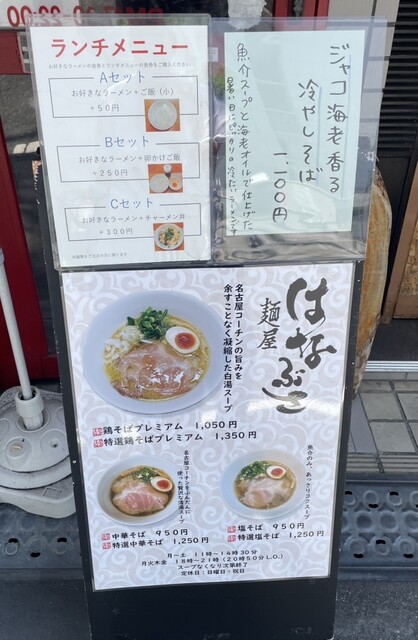 ランチメニュー
お好きなラーメンの食券とランチメニューの食券をご購入ください。
Aセット
お好きなラーメン+ご飯(小)
+50円
Bセット
お好きなラーメン+卵かけご飯
+250円
Cセット
お好きなラーメン+チャーメン丼
+300円
ジャコ海老香る
冷やしそば
1,100円
魚介スープと海老オイルで仕上げた
暑い日にピッタリの冷たいラーメンです
麺屋
はなぶさ
名古屋コーチンの旨みを
余すことなく凝縮した白湯スープ
鶏そばプレミアム 1,050円
特選鶏そばプレミアム 1,350円
名古屋コーチンをふんだんに
使った贅沢な清湯スープ
中華そば 950円
特選中華そば 1,250円
魚介のみ、あっさりコクスープ
塩そば 950円
特選塩そば 1,250円
月〜土 11時〜14時30分
月火木金 18時〜21時(20時50分L.O.)
スープなくなり次第終了
定休日:日曜日・祝日